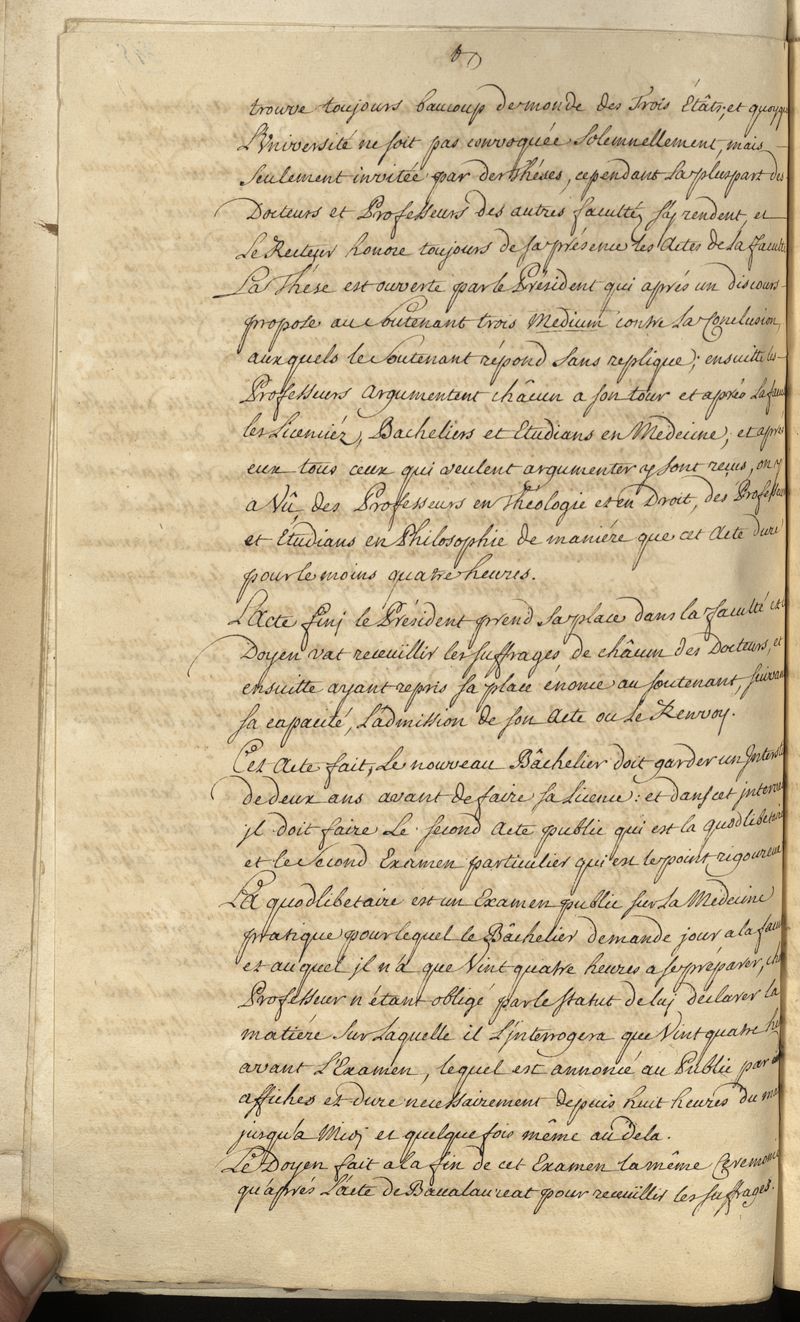 8)
trouve toujours baucoup de monde des Trois États; et quoyqu
L'Université ne soit pas convoquée Solemnellement, mais
Seulement invitée par des Théses, cependant La pluspart des
Docteurs et Professeurs des autres faculté, s'y rendent, et
Le Recteur honore toujours de sa présence les Actes de La Faculté
La Thése est ouverte par le Président qui aprés un discours
propose au Soutenant trois Medium contre La Conclusion,
auxquels le Soutenant répond Sans replique; ensuitte les
Professeurs Argumentent châcun a son tour et aprés La facu
les Licenciéz, Bacheliers et Etudians en Medecine; et aprés
eux tous ceux qui veulent argumenter y sont reçus, on y
a Vû des Professeurs en Théologie et en Droit, des Professeu
et Étudians en Philosophie de maniére que cet Acte dure
pour le moins quatre heures.
L'Acte finj le Président prend Sa place dans la faculté et
Doyen vat receüillir les suffrages de châcun des Docteurs, et
ensuitte ayant repris sa place énonce au soutenant, suivan
sa capacité, L'admission de son Acte ou Le Renvoy.
Cet Acte fait, Le nouveau Bâchelier doit garder un Inters
de deux ans avant de faire sa Licence: et dans cet interva
jl doit faire Le second Acte public qui est la quodlibetaire
et le Second Examen particulier qui est le point rigoureux
La quodlibetaire est un Examen public sur La Medecine
pratique pour lequel le Bâchelier demande jour a la facu
et auquel jl n'a que Vint quatre heures a se préparer, ch
Professeur n'étant obligé par le statut de luj déclarer la
matiére sur Laquelle il L'jnterrogera que Vint quatre he
avant L'Examen, lequel est annoncé au Public par
affiches et dure necessairement depuis huit heures du ma
jusqu'a Midj et quelque fois même au dela.
Le Doyen fait a la fin de cet Examen la même Ceremoni
qu'aprés L'acte de Baccalaureat pour receüillir les suffrages.